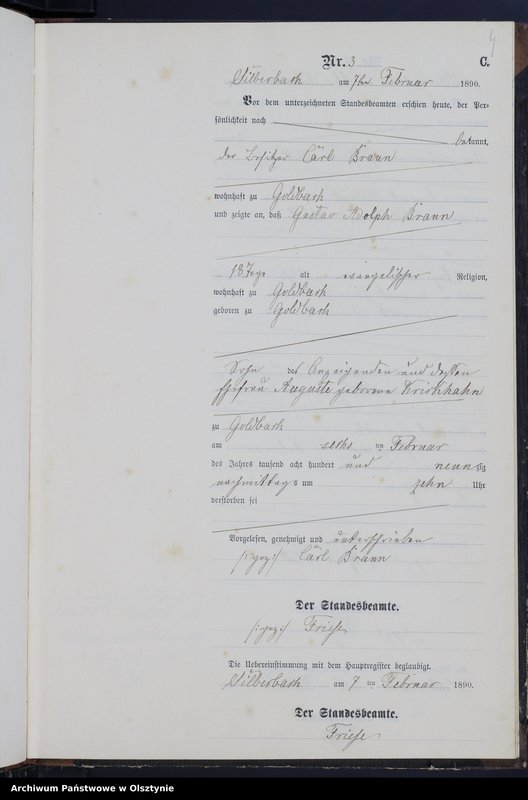 4
Nr. 3 C.
Silberbach am 7ten Februar 1890.
Vor dem unterzeichneten Standesbeamten erschien heute, der Per-
sönlichkeit nach
bekannt,
der Besitzer Carl Braun
wohnhaft zu Goldbach
und zeigte an, daß Gustav Adolph Braun
18 Tage alt evangelischer Religion,
wohnhaft zu Goldbach
geboren zu Goldbach
Sohn des Anzeigenden und dessen
Ehefrau Auguste geborene Kirschhahn
zu Goldbach
am sechs ten Februar
des Jahres tausend acht hundert und neunzig
nachmittags um zehn Uhr
verstorben sei
Vorgelesen, genehmigt und unterschrieben
/: gez :/ Carl Braun
Der Standesbeamte.
/: gez :/ Friese
Die Uebereinstimmung mit dem Hauptregister beglaubigt.
Silberbach am 7 ten Februar 1890.
Der Standesbeamte.
Friese
Archiwum Państwowe w Olsztynie